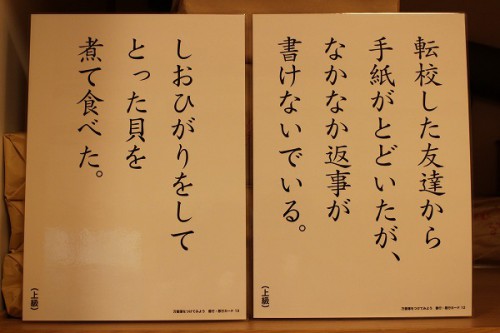 転校した友達から
手紙がとどいたが、
なかなか返事が
書けないでいる。
（上級）
しおひがりをして
とった貝を
煮て食べた。
（上級）